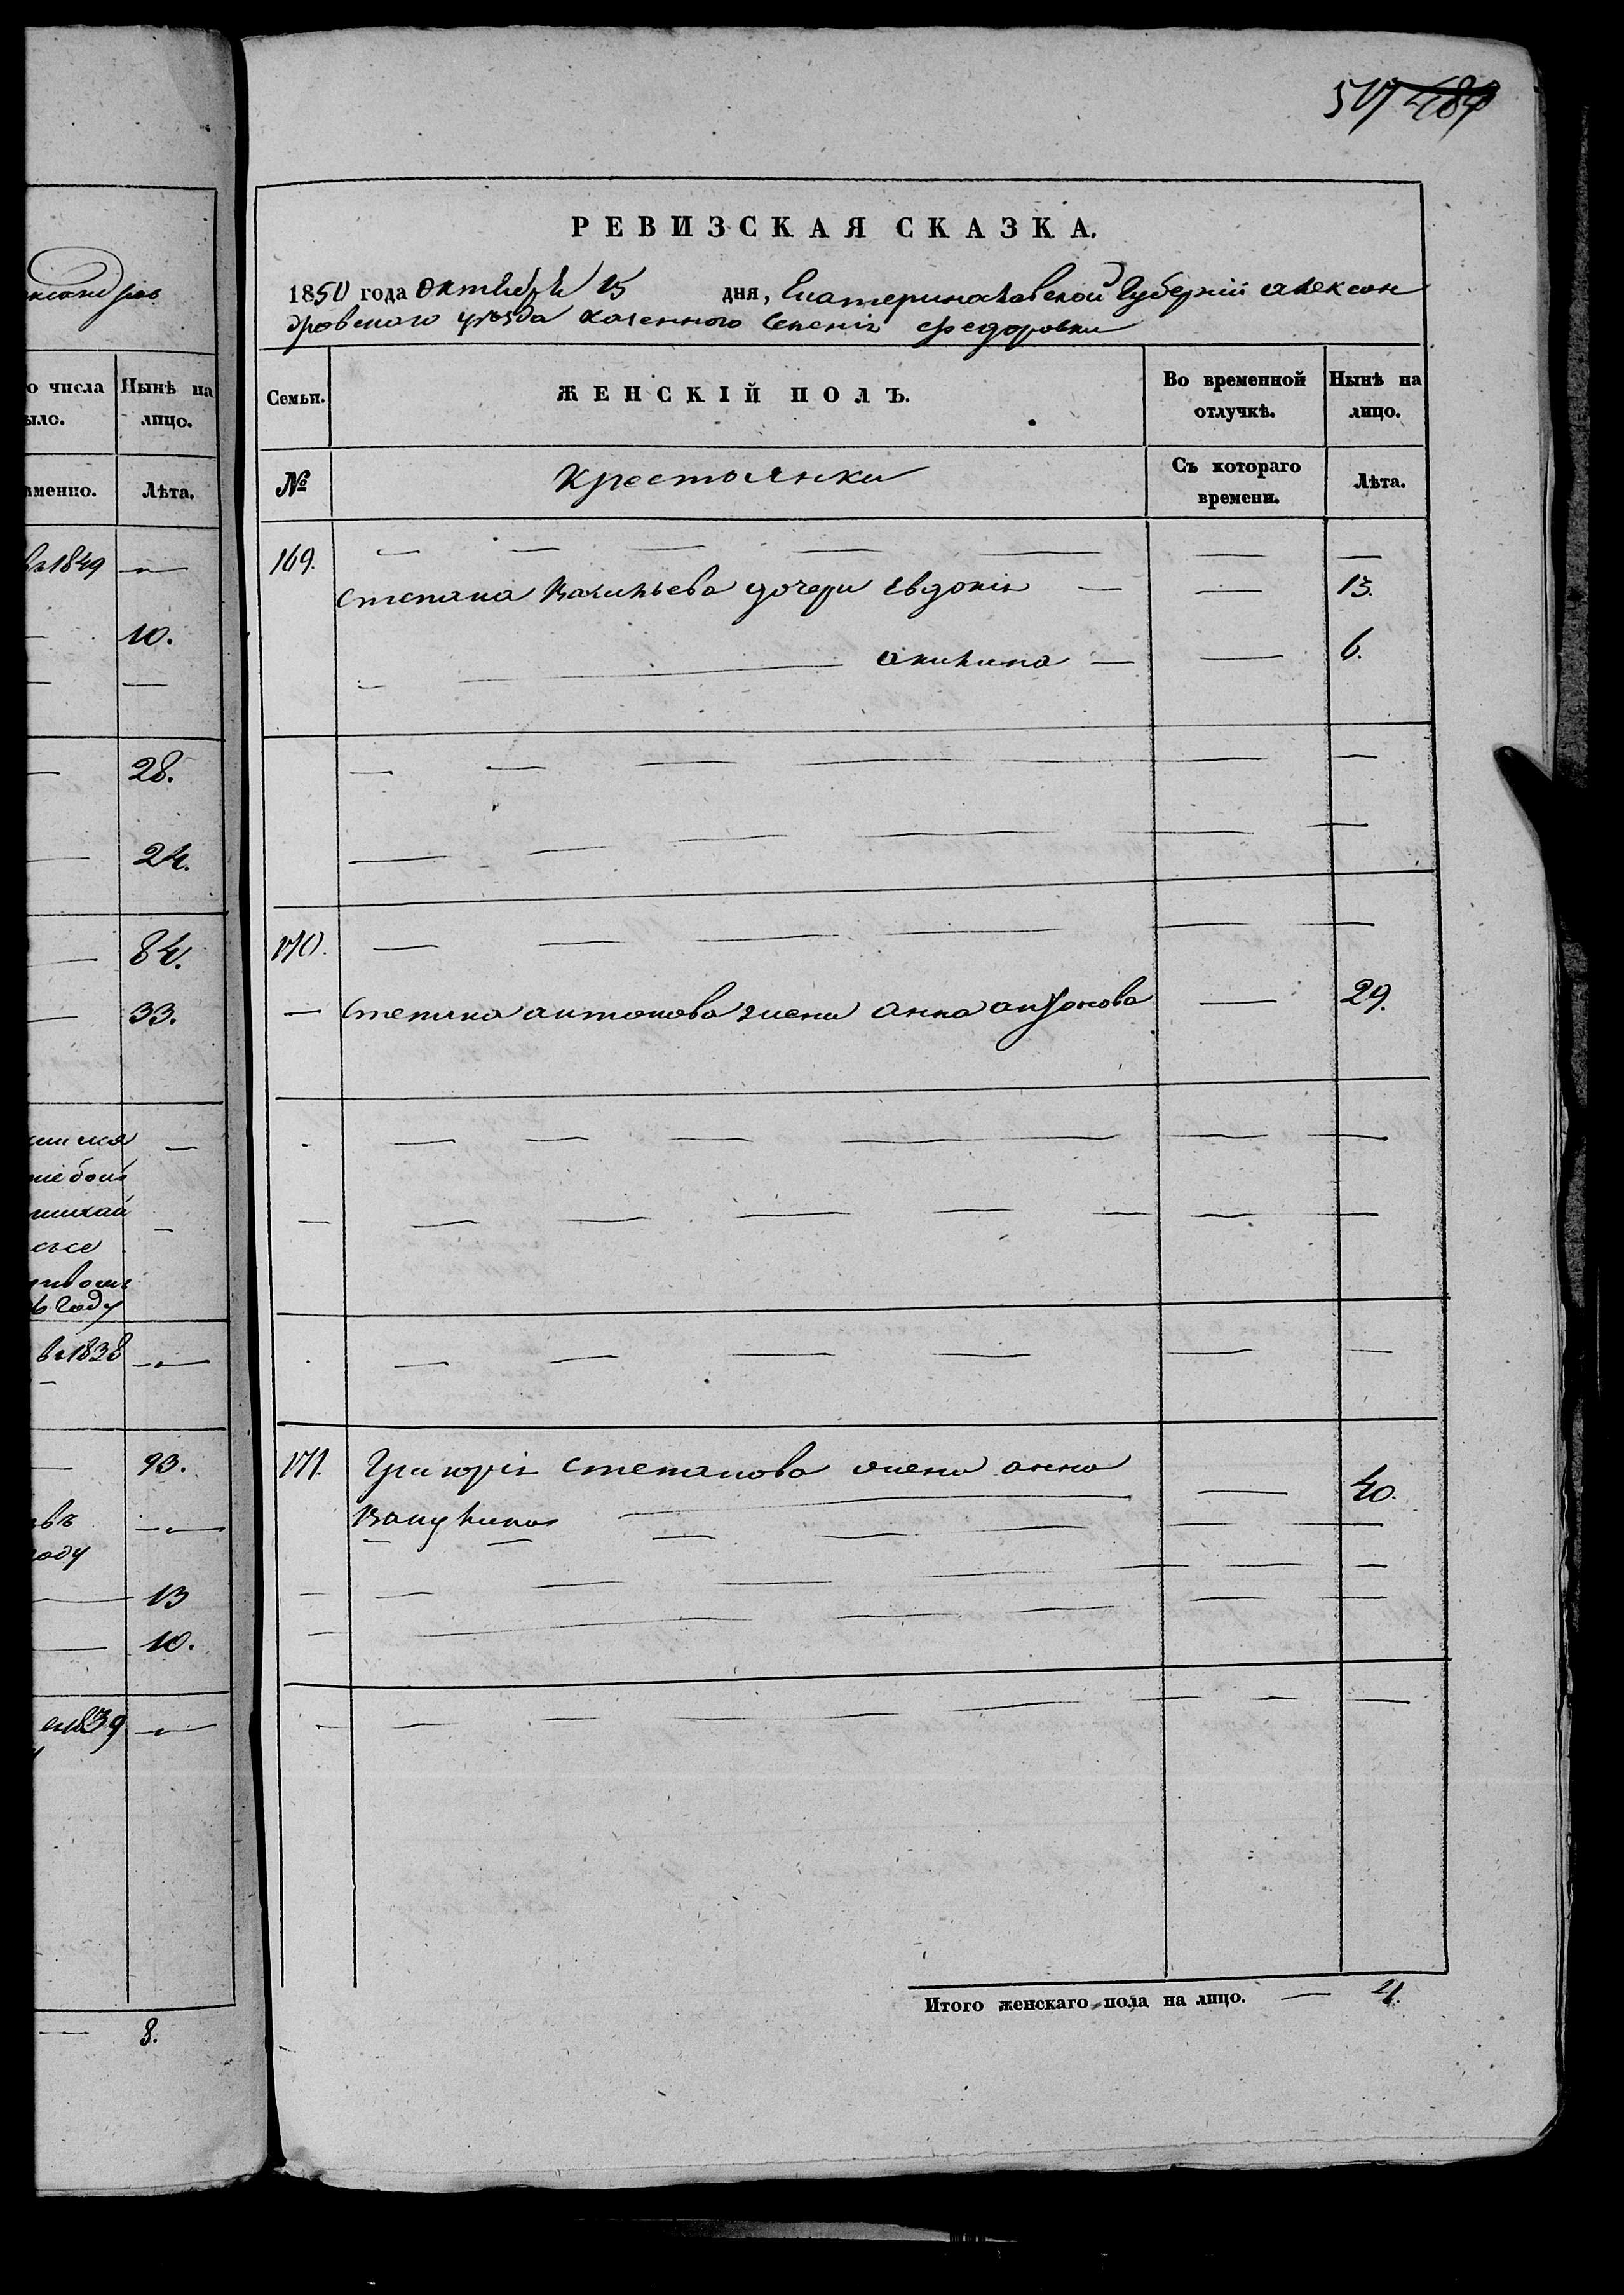 517 484
ксанд ров
о числа Нынѣ на
ыло. лицо.
именно. Лѣта.
въ 1849 —
10.
28.
24.
84.
33.
6 году
въ 1838 —
93.
въ
году
13
10.
1839 —
8.
РЕВИЗСКАЯ СКАЗКА.
1850 года октября 15 дня, Екатеринославской Губерніи Алексан
дровского уѣзда казенного Селенія Федоровки
Семьи. ЖЕНСКІЙ ПОЛЪ. Во временной отлучкѣ. Нынѣ на лицо.
№ Крестьянки Съ котораго времени. Лѣта.
169.
Степана Васильева дочери Евдокія — — 13.
Акилина — — 6.
170.
— Степана антонова жена анна антонова — 29.
171. Григорія Степанова жена анна
— 40.
Итого женскаго пола на лицо. — 4.